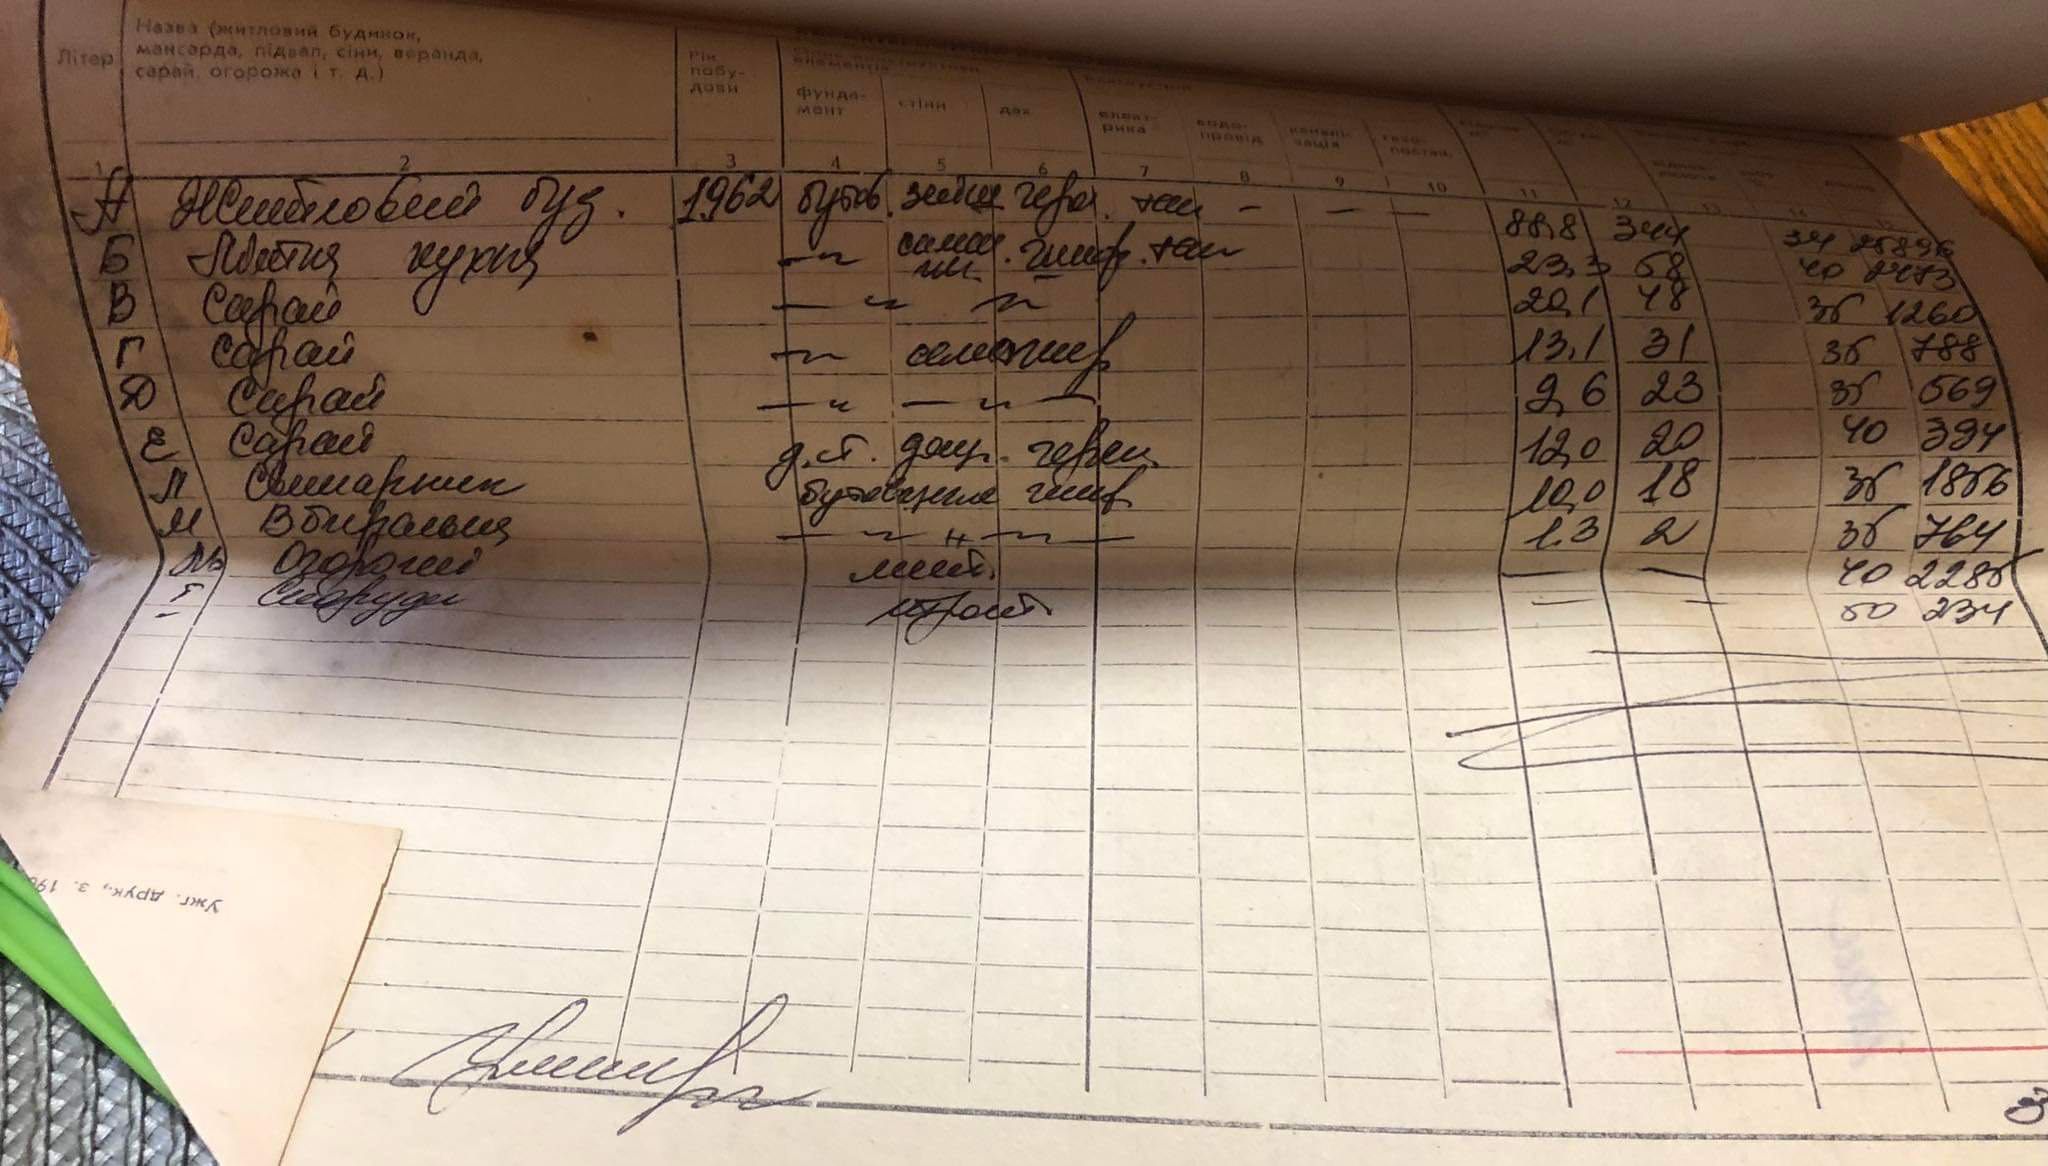 Літер Назва (житловий будинок, мансарда, підвал, сіни, веранда, сарай, огорожа і т. д.) Рік побудови фундамент стіни дах електрика водопровід каналізація газопостач.
1 2 3 4 5 6 7 8 9 10 11 12 13 14 15
А Житловий буд. 1962 бутов. череп. так — — — 88,8 344 34 25896
Б Літня кухня —"— саман шиф. так 23,3 58 40 2473
В Сарай — " — 20,1 48 35 1260
Г Сарай —"— шиф 13,1 31 35 788
Д Сарай — " — " — 9,6 23 35 569
Е Сарай д.ст. дощ. череп 12,0 20 40 394
Л Свинарник бутов цегла шиф 10,0 18 35 1856
М Вбиральня — " — " — " — 1,3 2 35 764
№ Огорожі — — 40 2285
I Споруди — — 50 234
Ужг. друк., з. 19